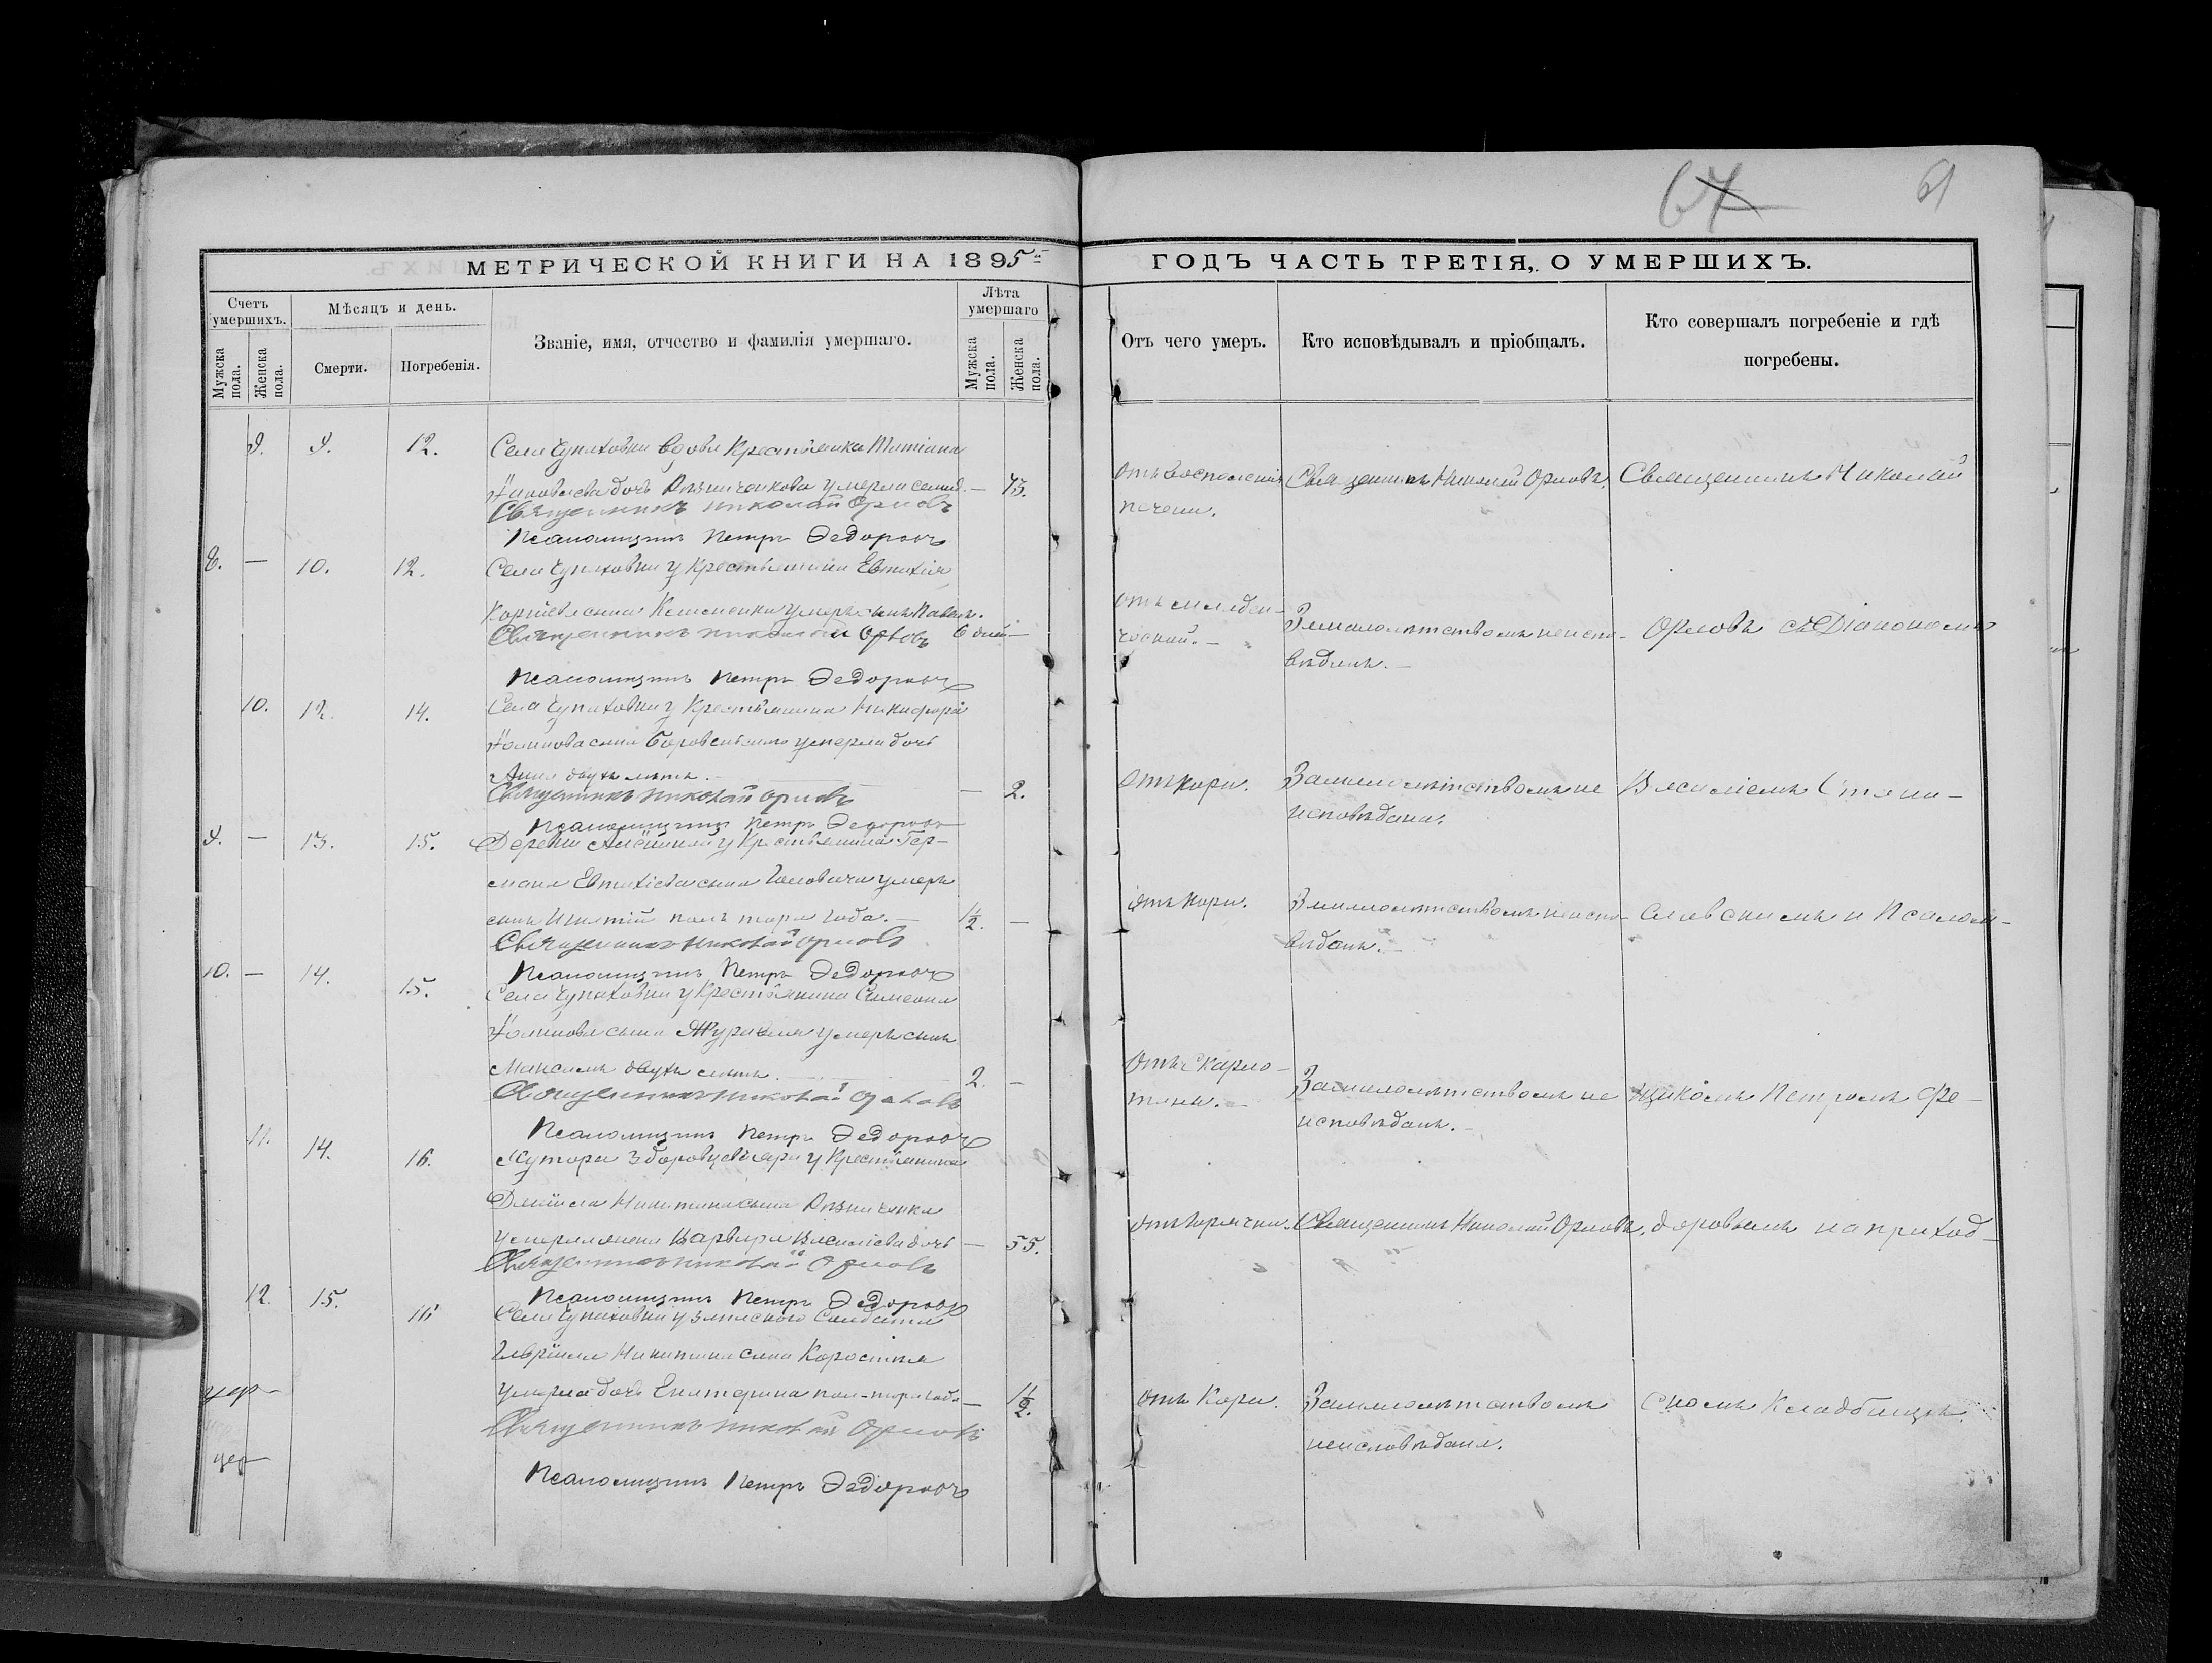 67
61
МЕТРИЧЕСКОЙ КНИГИ НА 1895
Счетъ умершихъ.
Мѣсяцъ и день.
Званіе, имя, отчество и фамилія умершаго.
Лѣта умершаго
Мужска пола.
Женска пола.
Смерти.
Погребенія.
Мужска пола.
Женска пола.
9. 9. 12. Села Чупаховки вдова Крестьянка Татіана
дочь Рѣзниченкова умерла — 73.
Священникъ Николай Орловъ
Псаломщикъ Петръ Федоровъ
8. — 10. 12. Села Чупаховки у Крестьянина Евтихія
сына умеръ сынъ Павелъ.
Священникъ Николай Орловъ 6 дней —
Псаломщикъ Петръ Федоровъ
10. 12. 14. Села Чупаховки у Крестьянина Никифора
сына Боровенскаго умерла дочь
Анна двухъ лѣтъ.
Священникъ Николай Орловъ — 2.
Псаломщикъ Петръ Федоровъ
9. — 13. 15. Деревни у Крестьянина Гер-
мана Евтихіева сына Головача умеръ
сынъ Игнатій полъ тора года. — 1½. —
Священникъ Николай Орловъ
Псаломщикъ Петръ Федоровъ
10. — 14. 15. Села Чупаховки у Крестьянина Симеона
сына Журавля умеръ сынъ
Максимъ двухъ лѣтъ. 2. —
Священникъ Николай Орловъ
Псаломщикъ Петръ Федоровъ
11. 14. 16. Хутора у Крестьянина
Даніила Никитина сына Рѣзниченка
умерла жена Варвара Василіева дочь — 55.
Священникъ Николай Орловъ
Псаломщикъ Петръ Федоровъ
12. 15. 16 Села Чупаховки у запаснаго Солдата
Гавріила Никитина сына Коростыля
умерла дочь Екатерина пол-тора года — 1½.
Священникъ Николай Орловъ
Псаломщикъ Петръ Федоровъ
ГОДЪ ЧАСТЬ ТРЕТІЯ, О УМЕРШИХЪ.
Отъ чего умеръ.
Кто исповѣдывалъ и пріобщалъ.
Кто совершалъ погребеніе и гдѣ
погребены.
Отъ воспаленія Священникъ Николай Орловъ. Священникъ Николай
печени.
Отъ младен-
ческой. — За малолѣтствомъ неиспо- Орловъ съ Діакономъ
вѣданъ. —
Отъ кори. За малолѣтствомъ не Василіемъ Стани-
исповѣдана.
Отъ кори. За малолѣтствомъ неиспо- славскимъ и Псалом-
вѣданъ. —
Отъ Скарла-
тины. — За малолѣтствомъ не щикомъ Петромъ Фе-
исповѣданъ. —
Отъ горячки. Священникъ Николай Орловъ. доровымъ на приход-
Отъ Кори. За малолѣтствомъ скомъ Кладбищѣ.
неисповѣдана.